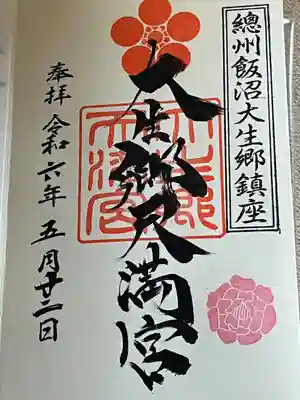 總州飯沼大生郷鎮座
大生郷天満宮
奉拝 令和六年 五月廿二日